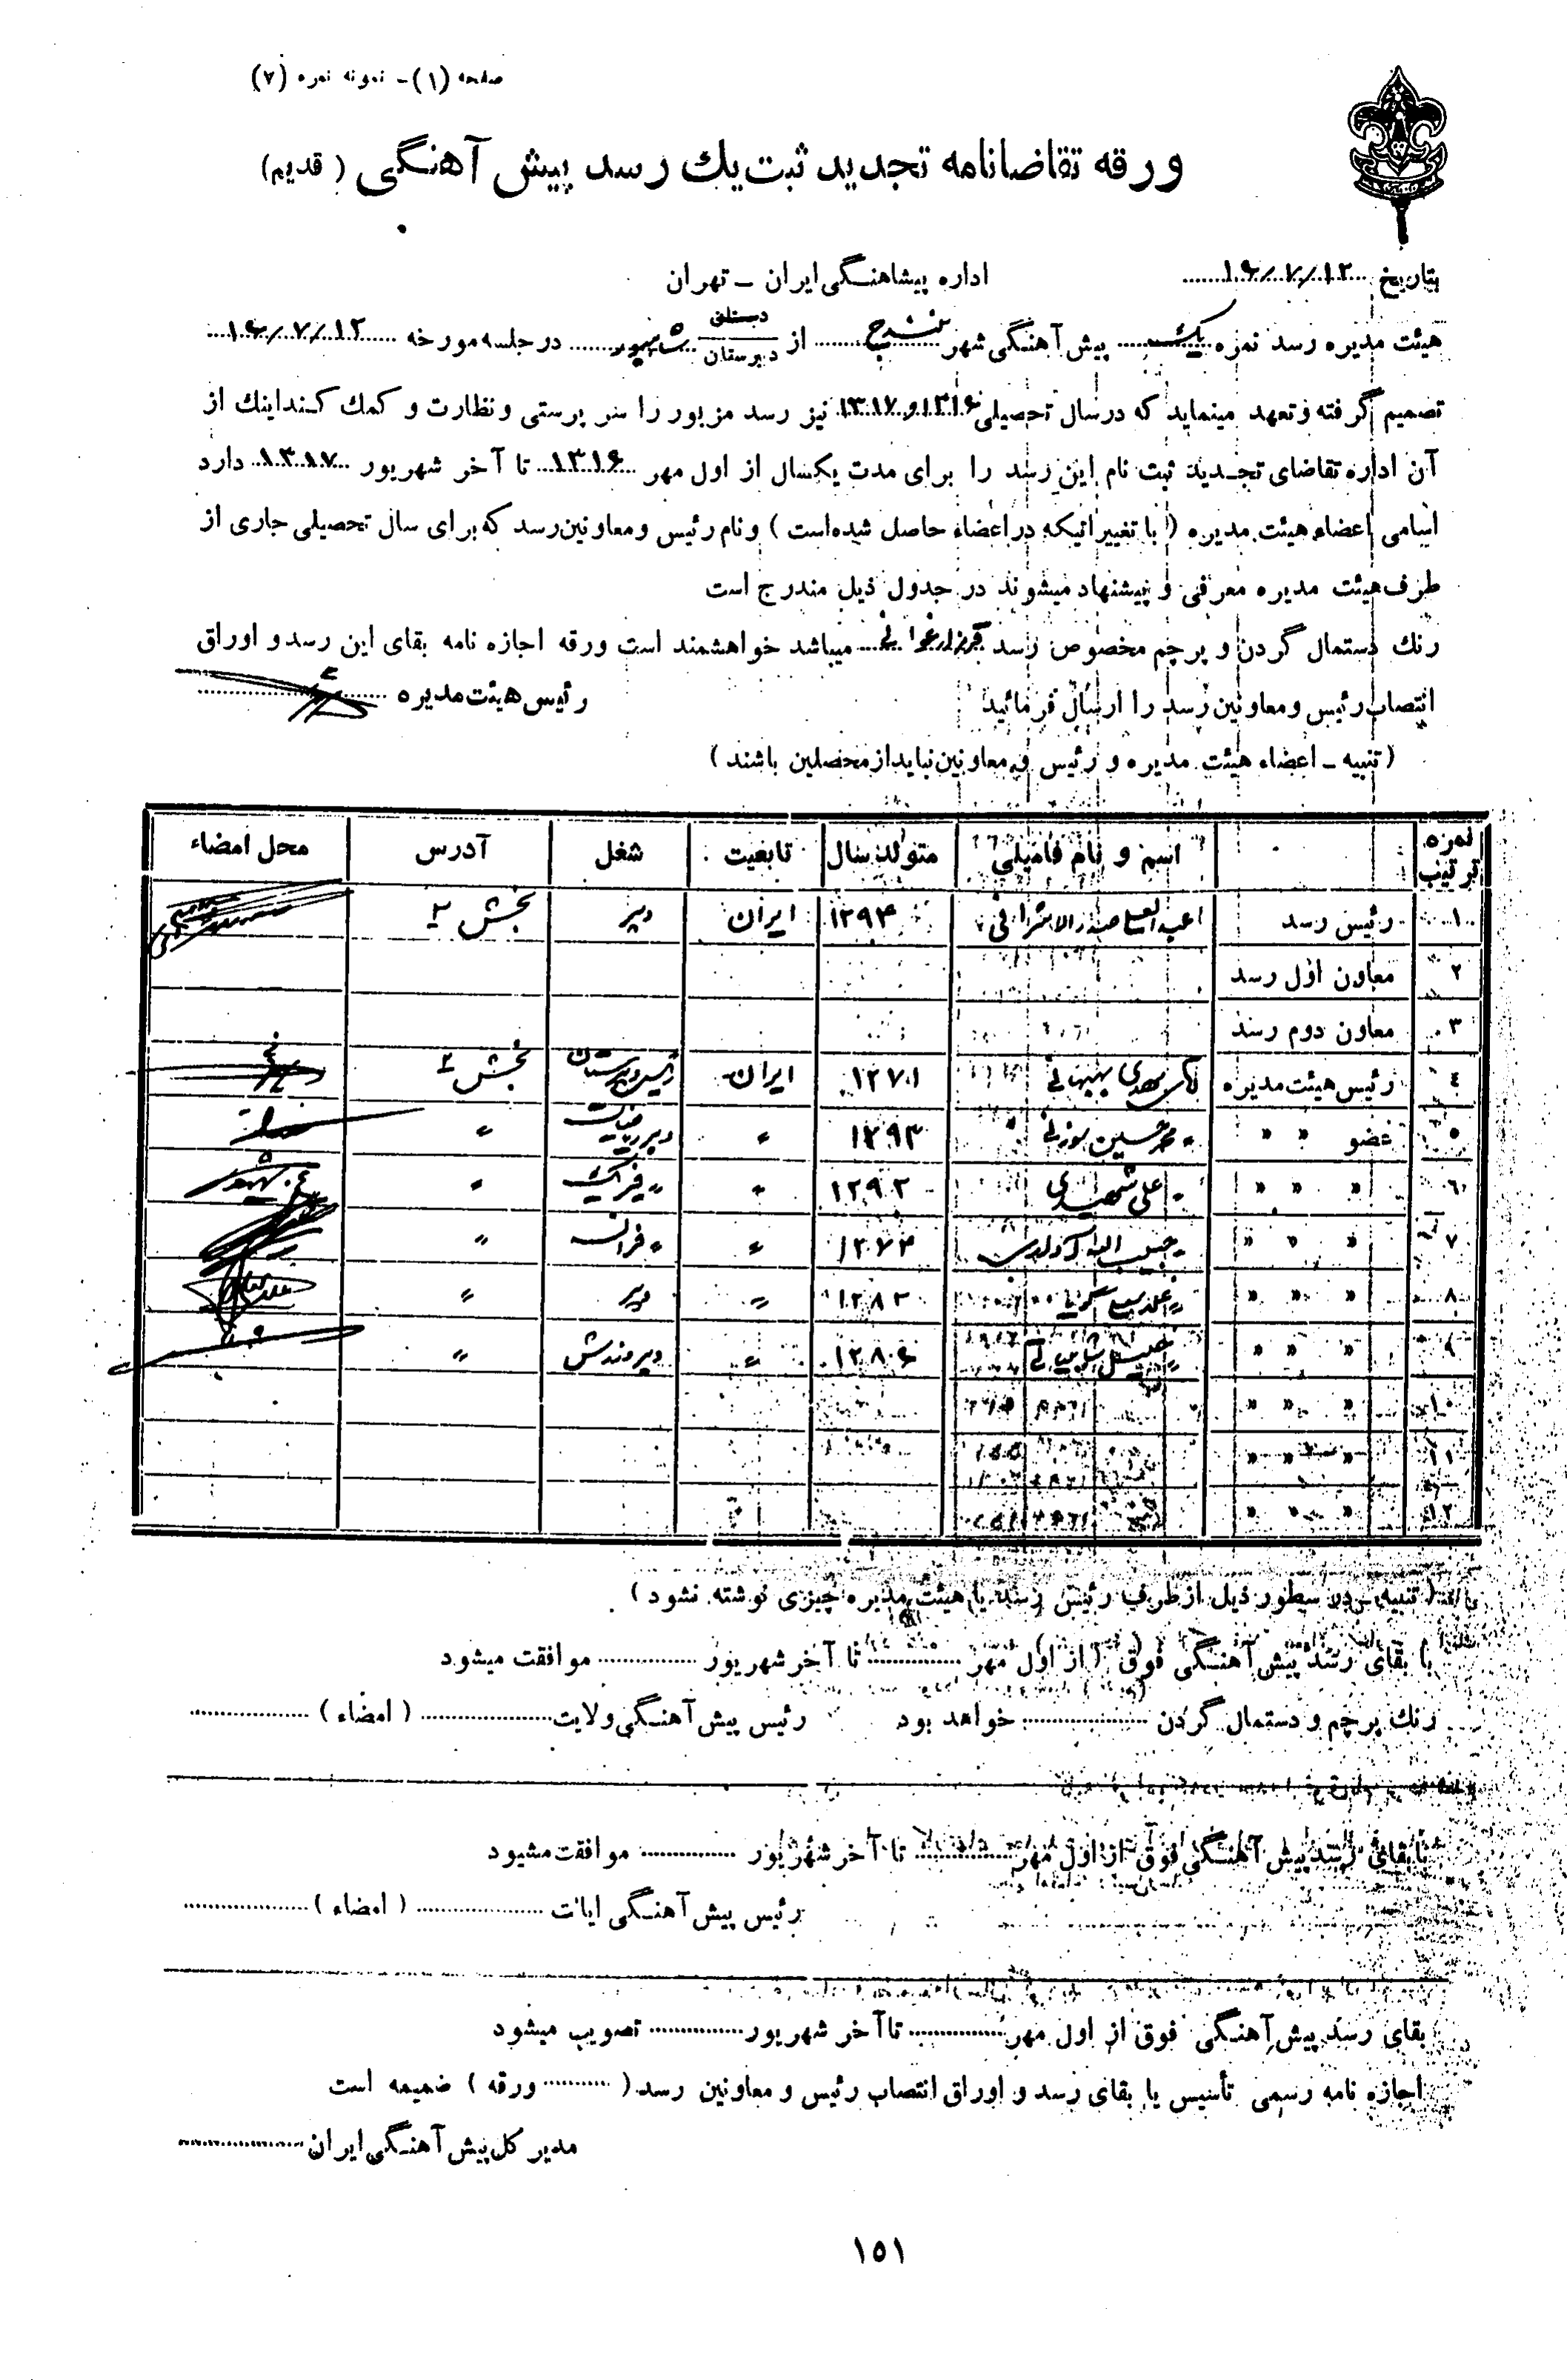 صفحه (۱) - نمونه نمره (۷)
ورقه تقاضانامه تجدید ثبت یك رسد پیش آهنگی ( قدیم )
بتاریخ ۱۶/۷/۱۲
اداره پیشاهنگی ایران - تهران
هیئت مدیره رسد نمره یك پیش آهنگی شهر سنندج از دبستان دبیرستان شاهپور در جلسه مورخه ۱۶/۷/۱۲
تصمیم گرفته و تعهد مینماید که در سال تحصیلی ۱۳۱۶ و ۱۳۱۷ نیز رسد مزبور را سر پرستی و نظارت و کمك کند اینك از
آن اداره تقاضای تجدید ثبت نام این رسد را برای مدت یکسال از اول مهر ۱۳۱۶ تا آخر شهریور ۱۳۱۷ دارد
اسامی اعضاء هیئت مدیره ( با تغییراتیکه در اعضاء حاصل شده است ) و نام رئیس و معاونین رسد که برای سال تحصیلی جاری از
طرف هیئت مدیره معرفی و پیشنهاد میشوند در جدول ذیل مندرج است
رنك دستمال گردن و پرچم مخصوص رسد میباشد خواهشمند است ورقه اجازه نامه بقای این رسد و اوراق
انتصاب رئیس و معاونین رسد را ارسال فرمائید
رئیس هیئت مدیره
( تنبیه - اعضاء هیئت مدیره و رئیس و معاونین نباید از محصلین باشند )
نمره ترتیب اسم و نام فامیلی متولد سال تابعیت شغل آدرس محل امضاء
۱ رئیس رسد صدرالاشرافی ۱۲۹۴ ایران دبیر بخش ۲
۲ معاون اول رسد
۳ معاون دوم رسد
٤ رئیس هیئت مدیره مهدی بهبهانی ۱۲۷۱ ایران رئیس دبیرستان بخش ۲
٥ عضو » » » محمد حسین ۱۲۹۳ » دبیر ریاضیات »
٦ » » » » علی شهیدی ۱۲۹۲ » » فیزیك »
۷ » » » » حبیب الله ۱۲۷۴ » » فرانسه »
۸ » » » » ۱۲۸۲ » دبیر »
۹ » » » » ۱۲۸۰۶ » دبیر ورزش »
۱۰ » » »
۱۱ » » »
۱۲ » » »
( تنبیه - در سطور ذیل از طرف رئیس رسد یا هیئت مدیره چیزی نوشته نشود )
با بقای رسد پیش آهنگی فوق از اول مهر ............ تا آخر شهریور ............ موافقت میشود
رنك پرچم و دستمال گردن ............ خواهد بود رئیس پیش آهنگی ولایت ............ ( امضاء ) ............
با بقای رسد پیش آهنگی فوق از اول مهر ............ تا آخر شهریور ............ موافقت میشود
رئیس پیش آهنگی ایالت ............ ( امضاء ) ............
بقای رسد پیش آهنگی فوق از اول مهر ............ تا آخر شهریور ............ تصویب میشود
اجازه نامه رسمی تأسیس یا بقای رسد و اوراق انتصاب رئیس و معاونین رسد ( ............ ورقه ) ضمیمه است
مدیر کل پیش آهنگی ایران ............
۱٥۱